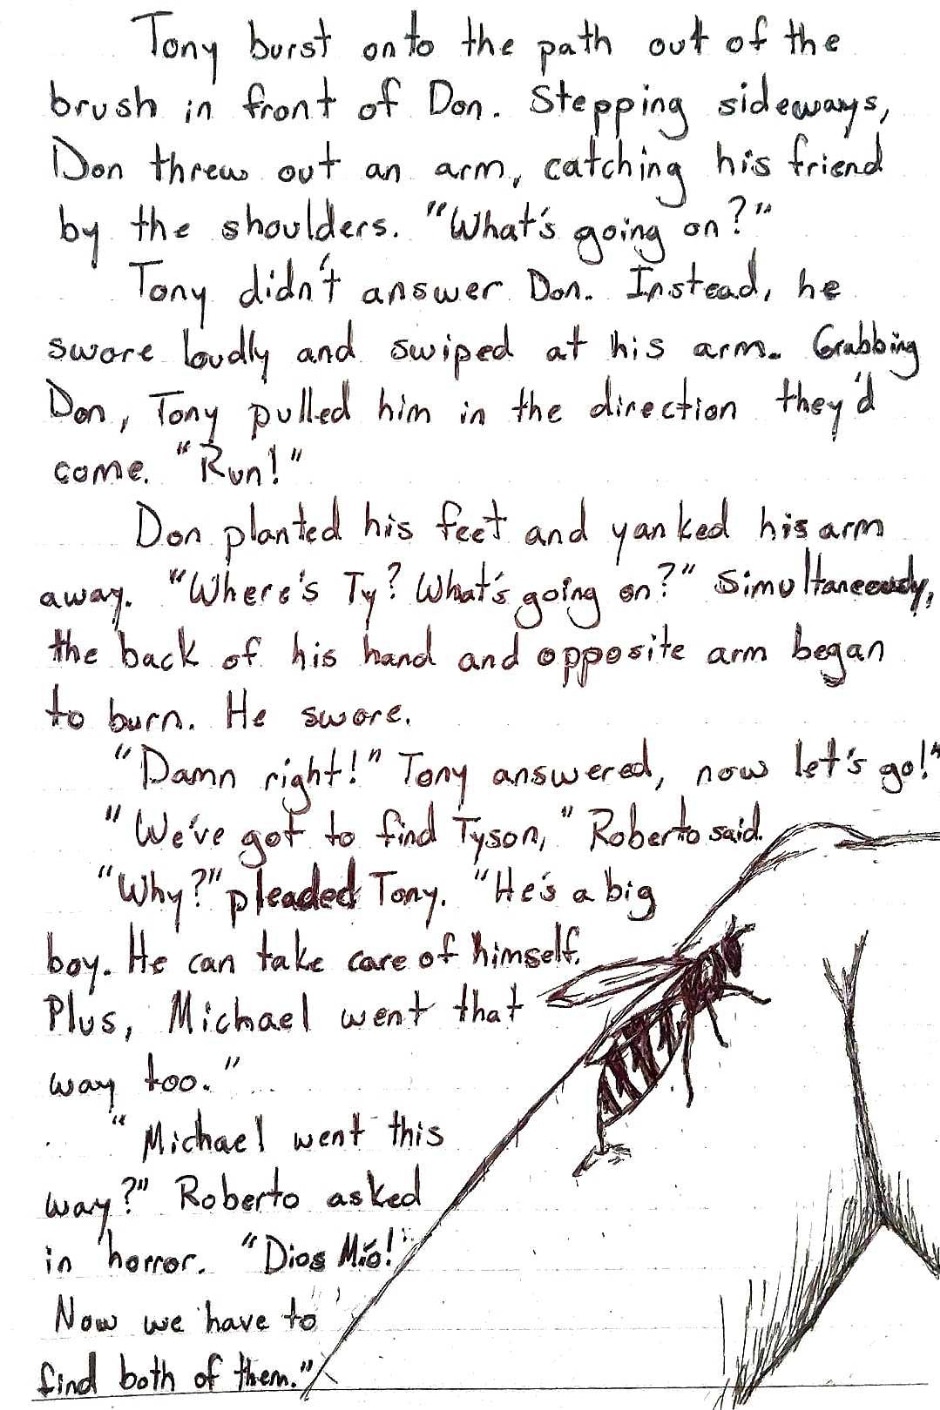 Tony burst onto the path out of the
brush in front of Don. Stepping sideways,
Don threw out an arm, catching his friend
by the shoulders. "What's going on?"
Tony didn't answer Don. Instead, he
swore loudly and swiped at his arm. Grabbing
Don, Tony pulled him in the direction they'd
come. "Run!"
Don planted his feet and yanked his arm
away. "Where's Ty? What's going on?" Simultaneously,
the back of his hand and opposite arm began
to burn. He swore.
"Damn right!" Tony answered, now let's go!"
"We've got to find Tyson," Roberto said.
"Why?" pleaded Tony. "He's a big
boy. He can take care of himself.
Plus, Michael went that
way too."
"Michael went this
way?" Roberto asked
in horror. "Dios Mío!
Now we have to
find both of them."